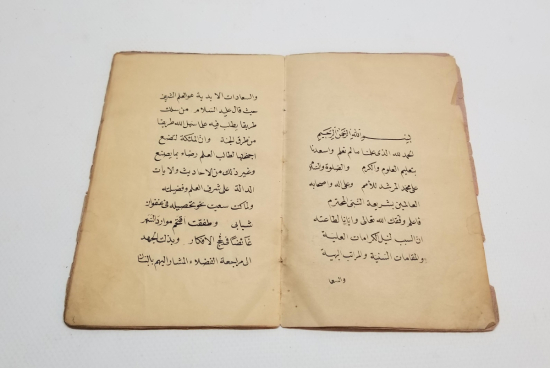 بسم الله الرحمن الرحيم
الحمد لله الذي علمنا مالم نعلم واسعدنا
بتعليم العلوم واكرم والصلوة والسلام
على محمد المرشد للامم وعلى اله واصحابه
العاملين بشريعة النبي المحترم
فاعلم وفقك الله تعالى وايانا لطاعته
ان السبب لنيل الكرامات العلية
والمقامات السنية والمراتب البهية
والسعا
والسعادات الابدية هو العلم الشريف
حيث قال عليه السلام من سلك
طريقا يطلب فيه علما سهل الله له طريقا
من طرق الجنة وان الملائكة لتضع
اجنحتها لطالب العلم رضاء بما يصنع
وغير ذلك من الاحاديث والايات
الدالة على شرف العلم وفضيلته
ولذا كنت سعيت نحو تحصيله في عنفوان
شبابي وطفقت اقتحم موارد السهر
في الافكار وبذلت الجهد
الى مريسعة الفضلاء المشار اليهم بالبنان